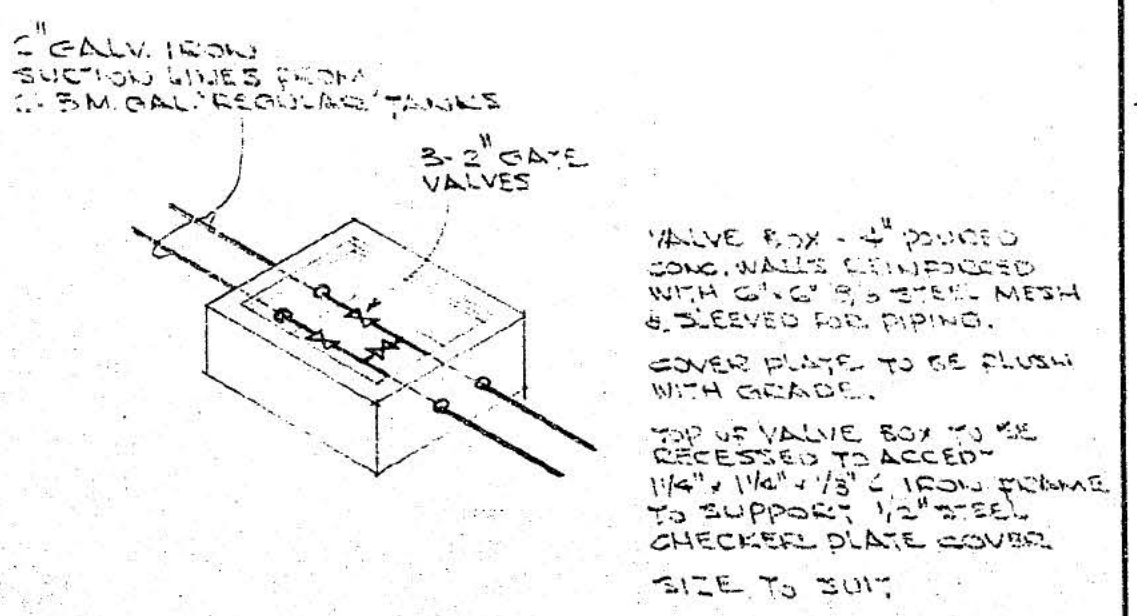 2" GALV. IRON
SUCTION LINES FROM
2- 5 M. GAL. 'REGULAR' TANKS
3- 2" GATE
VALVES
VALVE BOX - 4" POURED
CONC. WALLS REINFORCED
WITH 6" x 6" STEEL MESH
& SLEEVED FOR PIPING.
COVER PLATE TO BE FLUSH
WITH GRADE.
TOP OF VALVE BOX TO BE
RECESSED TO ACCEPT
1 1/4" x 1 1/4" x 1/8" L IRON FRAME
TO SUPPORT 1/2" STEEL
CHECKER PLATE COVER
SIZE TO SUIT